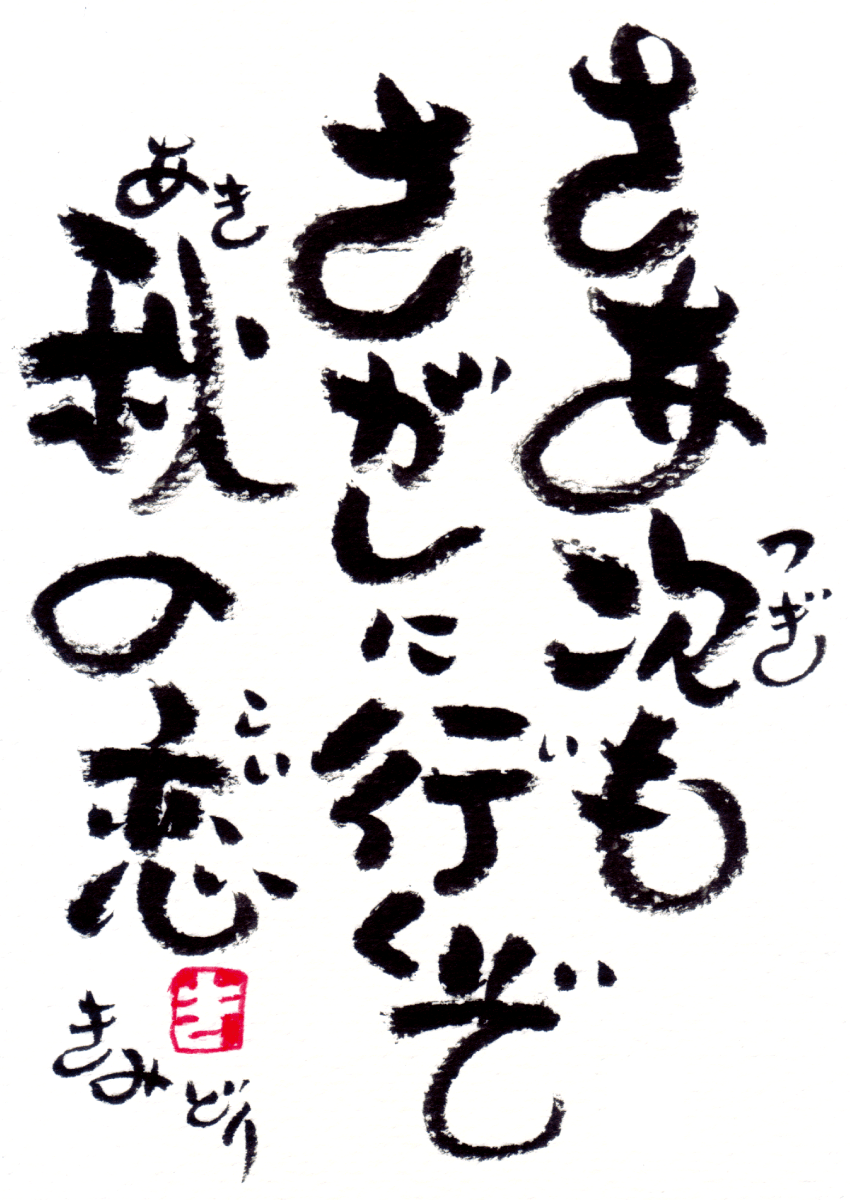 さあ次も
つぎ
さがしに行くぞ
い
秋の恋
あき
こい
きみどり
き